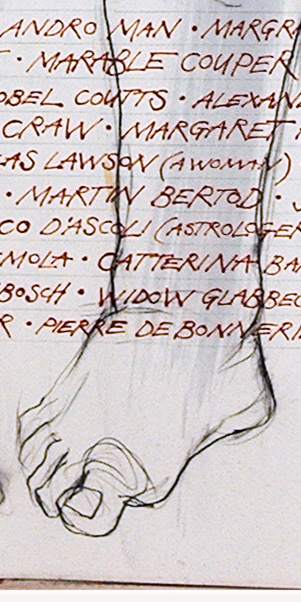 ANDRO MAN · MARGR
· MARABLE COUPER
OBEL COUTTS · ALEXAN
CRAW · MARGARET
AS LAWSON (A WOMAN)
· MARTIN BERTOD ·
CO D'ASCOLI (ASTROLOGER
MOLA · CATTERINA BA
BOSCH · WIDOW GLABBEC
R · PIERRE DE BONNERI